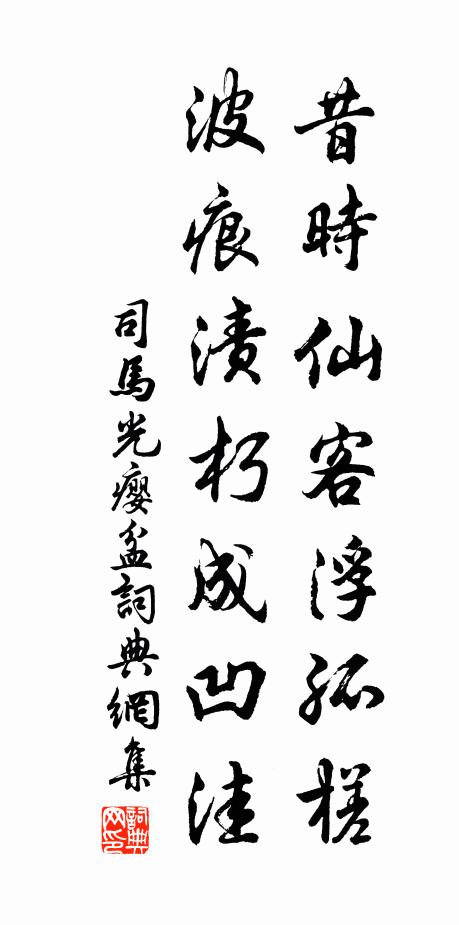 昔時仙客浮孤槎
波痕漬朽成凹洼
司馬光癭盆詞典網集
詞典網印